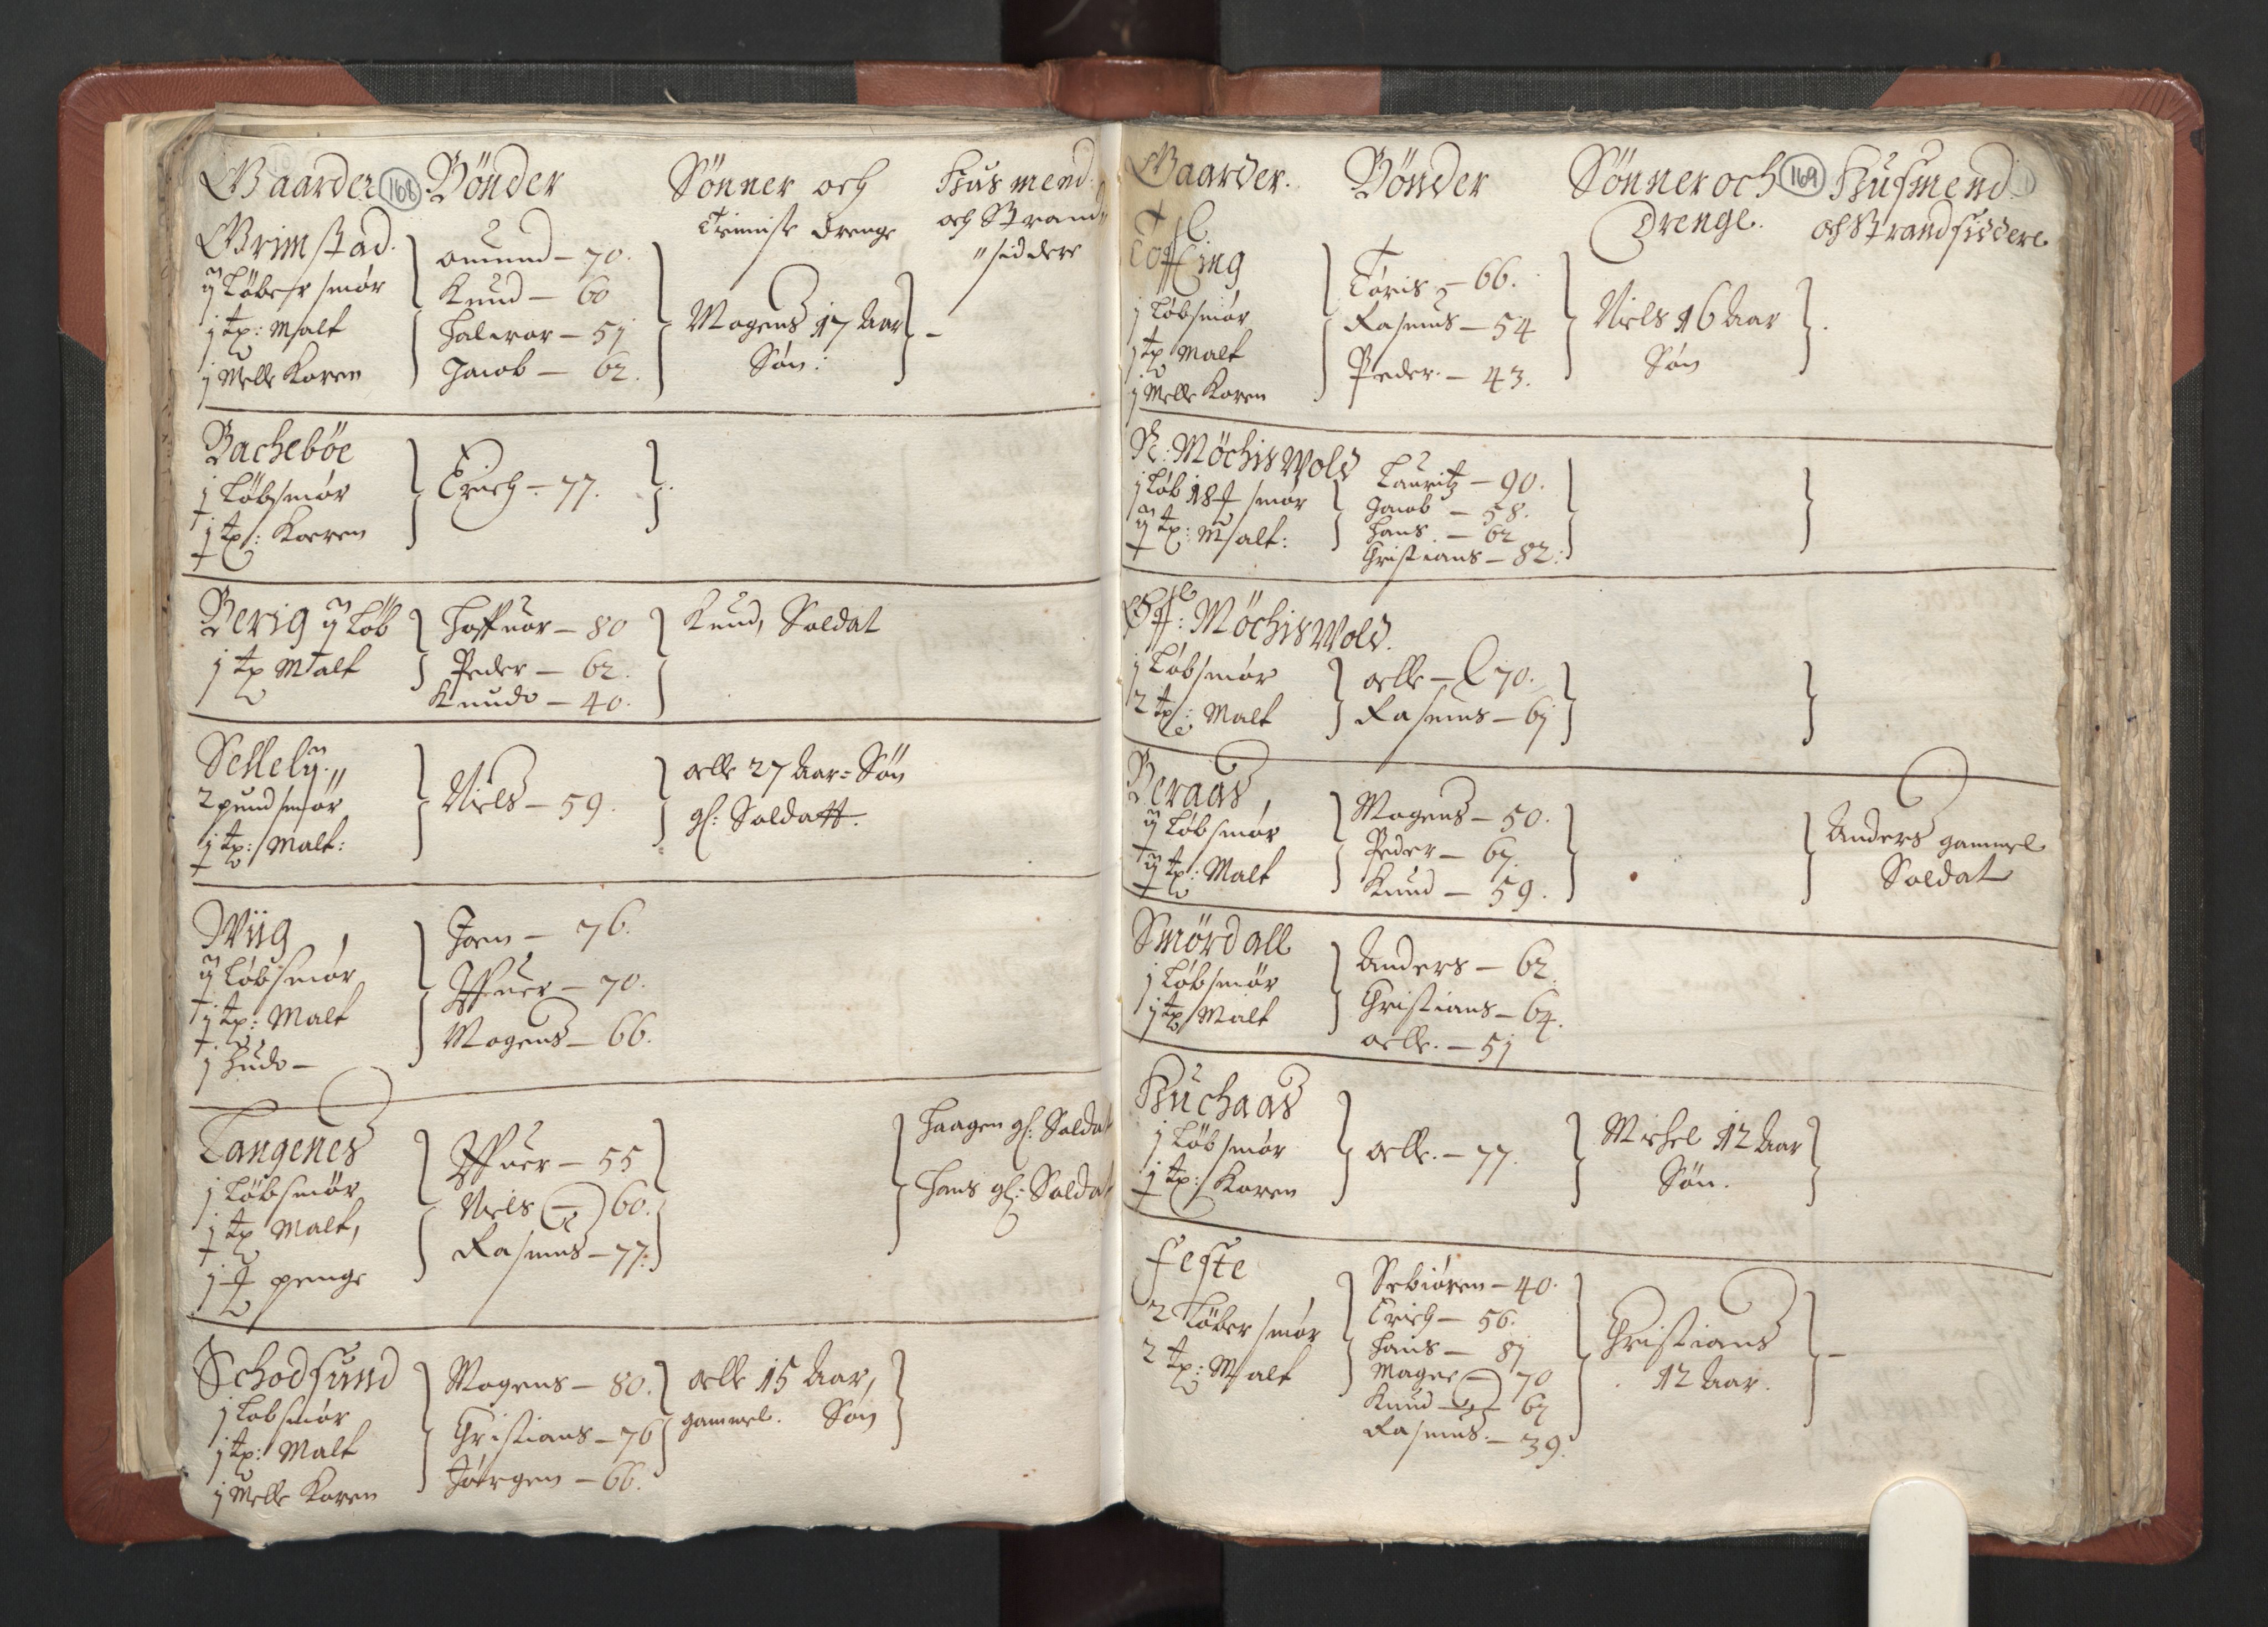 Gaarder 168 Bönder Sönner och Huusmend
Tienniste drenge och Strand
siddere
Grimstad.
ij Löber smör
j tp: Malt
j Melle Koren
Amund - 70.
Knud - 60
Halwor - 51
Jacob - 62.
Mogens 17 Aar
Søn:
Bacheböe
j Löb smör
j tp: Korren
Erich - 77.
Berig ij Löb
j tp Malt
Haffuor - 80
Peder - 62.
Knud - 40.
Knud, Soldat
Sellely
2 pund smör
j tp: Malt:
Niels - 59.
olle 27 Aar Søn
gl: Soldatt.
Wiig
ij Löb smör
j tp: Malt
j Hud -
Joen - 76.
Iffuer - 70.
Mogens - 66.
Tangenes
j Löb smör
j tp Malt,
penge
Iffuer - 55
Niels - 60.
Rasmus - 77.
Haagen gl: Soldat
Hans gl: Soldat
Schodsund
j Löb smör
j tp: Malt
j Melle Koren
Mogens - 80.
Christians - 76
Jørgen - 66.
olle 15 Aar,
gammel. Søn
Gaarder. Bönder Sönner och 169 Husmend
Drenge. och Strandsiddere
Töffting
j Löb smör
j tp Malt
j Melle Koren
Töris - 66.
Rasmus - 54
Peder - 43.
Niels 16 Aar
Søn
N: Möchis Wold
j Löb 18 smör
ij tp: Malt:
Lauritz - 90.
Jacob - 58.
Hans - 62
Christians - 82:
Öff: Möchis Wold.
j Löb smör
2 tp: Malt
olle - 70.
Rasmus - 61
Beraas,
ij Löb smör
ij tp: Malt
Mogens - 50.
Peder - 67.
Knud - 59.
Anders gammel
Soldat
Smördall
j Löb smör
j tp Malt
Anders - 62
Christians - 64.
olle. - 51
Huchaas
j Löb smör
j tp: Koren
olle. - 77.
Michel 12 Aar
Søn.
Feste
2 Löber smör
2 tp: Malt
Sebiören - 40.
Erich - 56.
Hans - 81
Magne - 70
Knud - 67
Rasmus. - 39.
Christians
12 Aar.